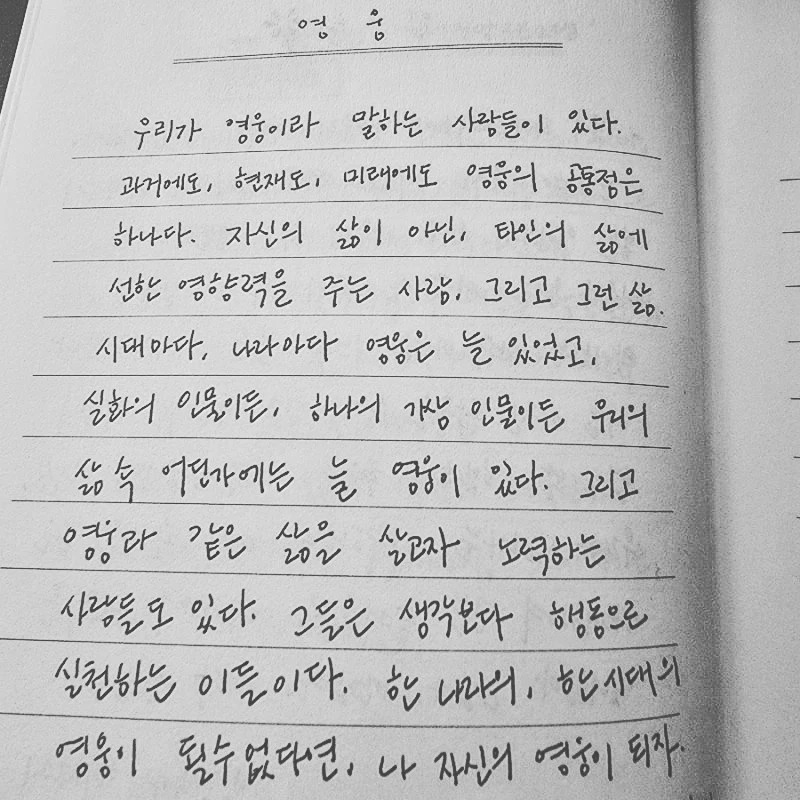 영 웅
우리가 영웅이라 말하는 사람들이 있다.
과거에도, 현재도, 미래에도 영웅의 공통점은
하나다. 자신의 삶이 아닌, 타인의 삶에
선한 영향력을 주는 사람, 그리고 그런 삶.
시대마다, 나라마다 영웅은 늘 있었고,
실화의 인물이든, 하나의 가상 인물이든 우리의
삶 속 어딘가에는 늘 영웅이 있다. 그리고
영웅과 같은 삶을 살고자 노력하는
사람들도 있다. 그들은 생각보다 행동으로
실천하는 이들이다. 한 나라의, 한 시대의
영웅이 될 수 없다면, 나 자신의 영웅이 되자.